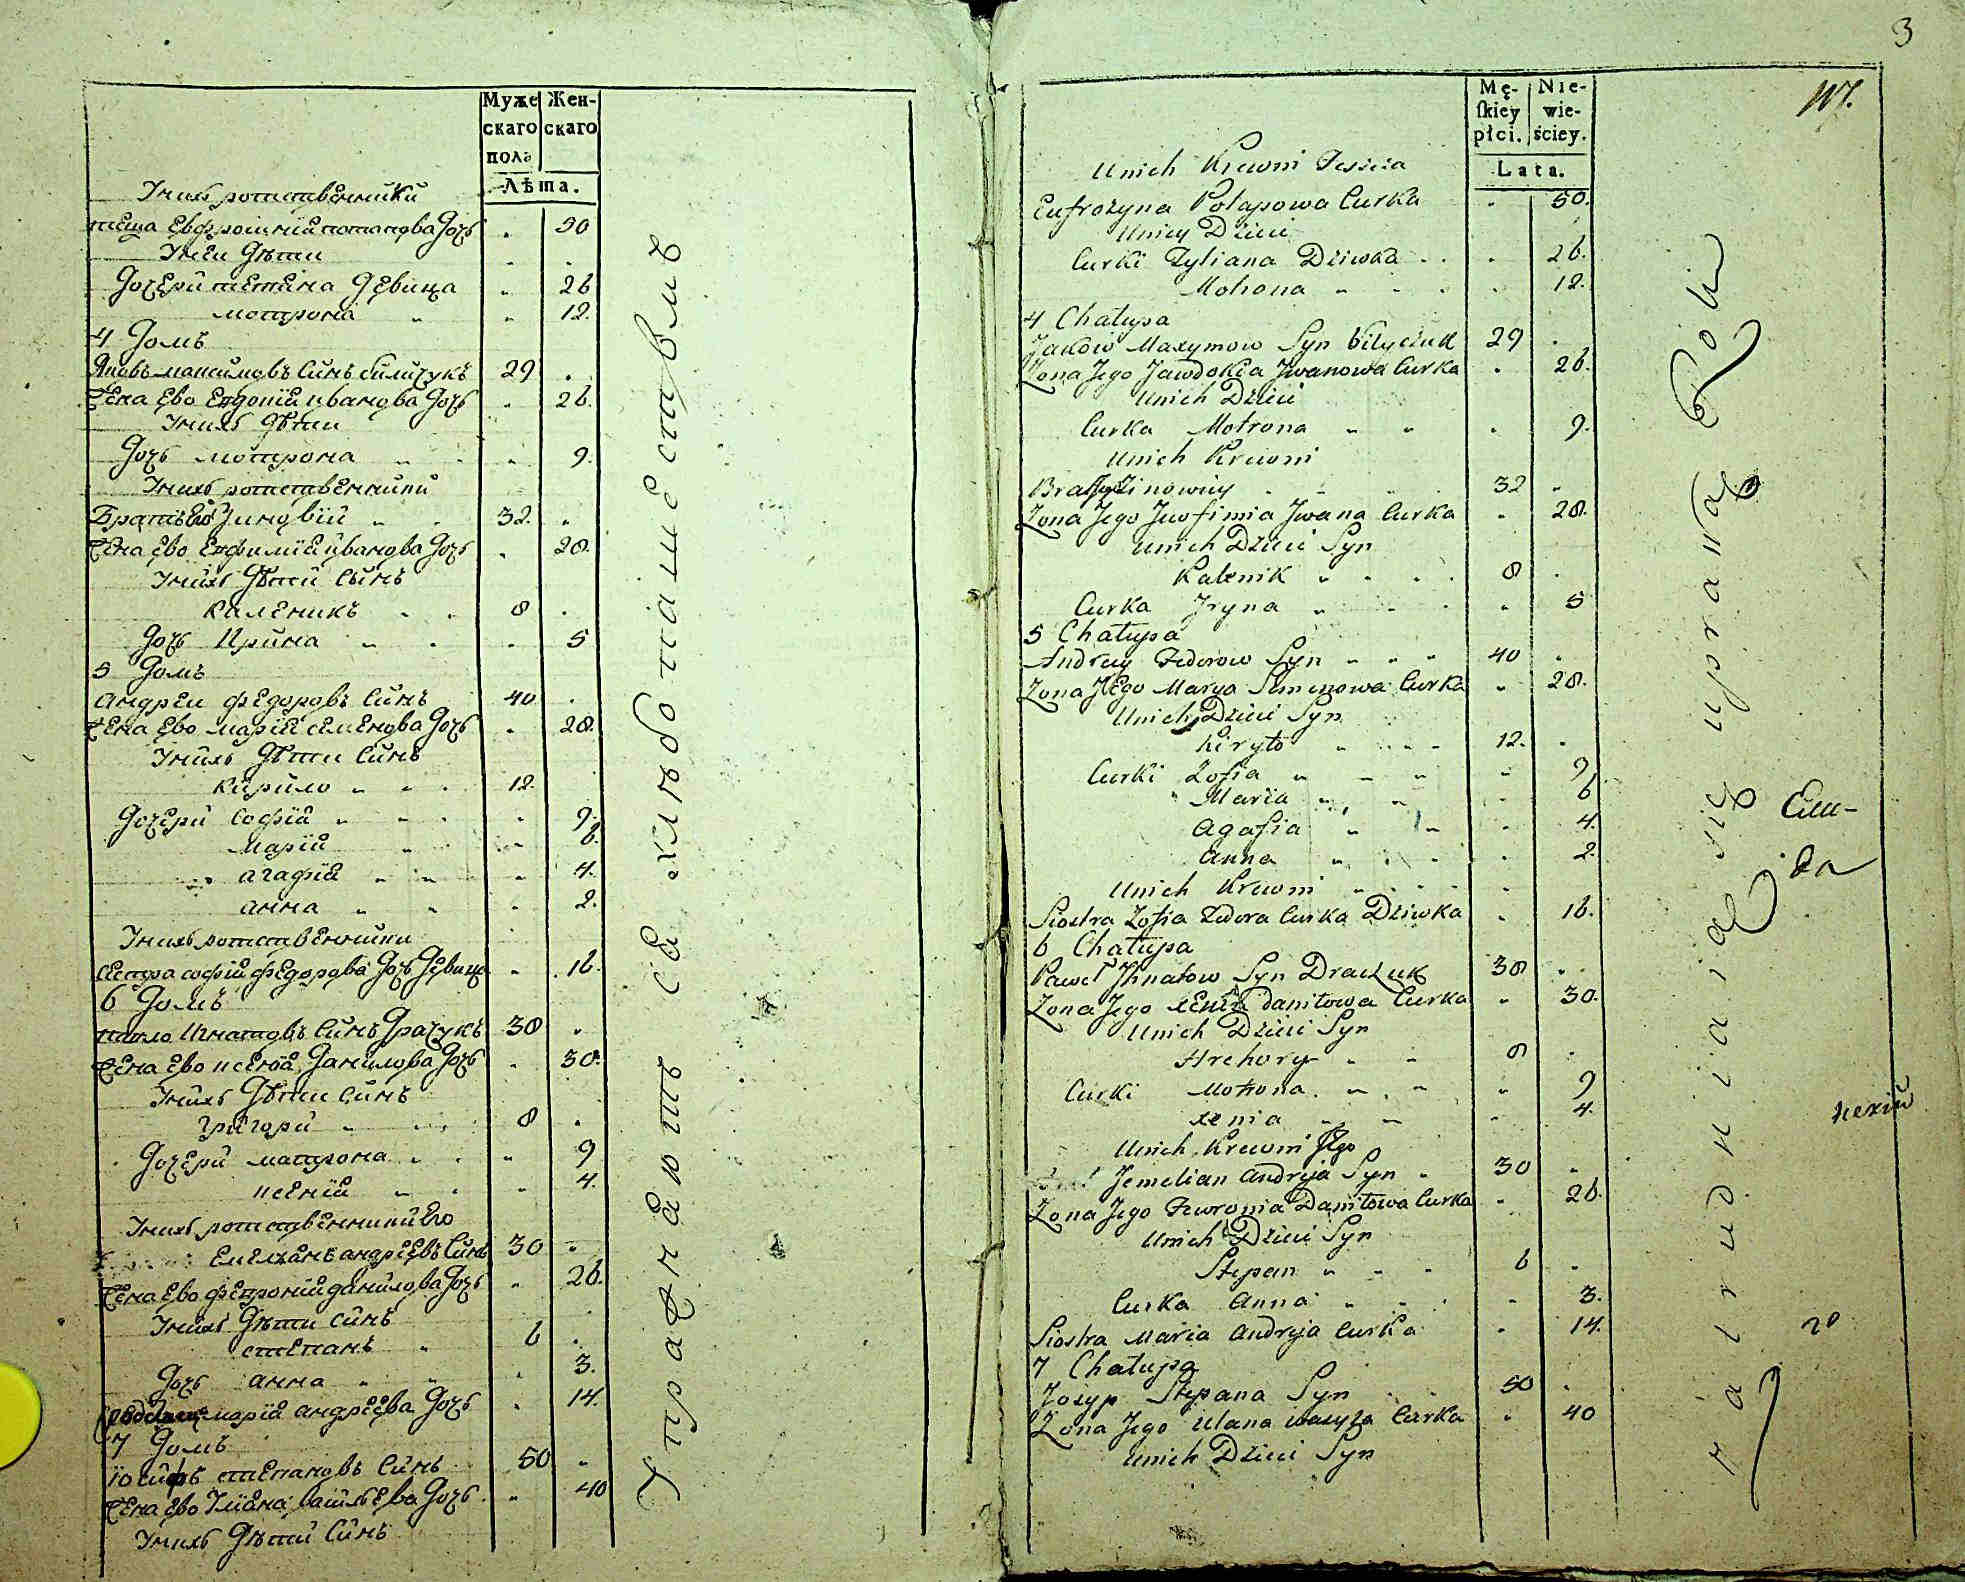 Муже Жен-
скаго скаго
пола
Лѣта.
Унихъ ротственники
теща Евфросинія потапова дочь " 50
Унеи дѣти
дочери тетяна девица " 26
мотрона " " 12.
4 домъ
Яковъ максимовъ синъ биличукъ 29 "
жена ево Евдокія иванова дочь " 26.
Унихъ дѣти
дочь мотрона " " 9.
Унихъ ротственники
Братъ Его Зиновiй " 32. "
жена ево Евфимiя иванова дочь " 28.
Унихъ дѣти синъ
каленикъ " " 8 "
дочь Ирина " " 5
5 домъ
андреи федоровъ синъ 40 "
жена ево марiя семенова дочь " 28.
Унихъ дѣти синъ
кирило " " 12.
дочери софiя " " 9.
марiя " " 6.
агафiя " " 4.
анна " " 2.
Унихъ ротственники
сестра софiя федорова дочь девица " 16.
6 домъ
павло Игнатовъ синъ драчукъ 38 "
жена ево ксенiя данилова дочь " 30.
Унихъ дѣти синъ
григори " " 8 "
дочери матрона " " 9
ксенiя " " 4.
Унихъ ротственники Его
Емелянъ андрѣевъ синъ 30 "
жена ево февронiя данилова дочь " 26.
Унихъ дѣти синъ
степанъ " 6 "
дочь анна " " 3.
марiя андрѣева дочь " 14.
7 домъ
iосифъ степановъ синъ 50 "
жена ево Улiяна васильева дочь " 40
Унихъ дѣти синъ
Упражняютъ съ хлѣбопашествамъ
3
Mę- Nie-
skiey wie-
płci. ściey.
Lata.
117.
Unich Krewni
Eufrozyna Potapowa Curka " 50.
Uniey Dzieci
Curki Tyliana Dziwka " 26.
Motrona " " 12.
4 Chatupa
Jakow Maxymow Syn Bilyczuk 29 "
Zona Jego Jawdokia Jwanowa Curka " 26.
Unich Dzieci
Curka Motrona " " 9.
Unich Krewni
Brat Zinowiy 32 "
Zona Jego Jewfimia Jwana Curka " 28.
Unich Dzieci Syn
Kalenik " " 8 "
Curka Jryna " " 5
5 Chatupa
Andrey Fedorow Syn " " 40 "
Zona Jego Marya Semenowa Curka " 28.
Unich Dzieci Syn
Kiryło " " 12. "
Curki Zofia " " 9
Maria " " 6
Agafia " " 4.
Anna " " 2.
Unich Krewni
Siostra Zofia Fedora Curka Dziwka " 16.
6 Chatupa
Paweł Jhnatow Syn Draczuk 38 "
Zona Jego xenia daniłowa Curka " 30.
Unich Dzieci Syn
Hrehory " " 8 "
Curki Motrona " " 9
xenia " " 4.
Unich Krewni Jego
Jemelian Andreja Syn " 30 "
Zona Jego Fewronia Daniłowa Curka " 26.
Unich Dzieci Syn
Stepan " " 6 "
Curka Anna " " 3.
Siostra Maria Andreja Curka " 14.
7 Chatupa
Jozyp Stepana Syn 50 "
Zona Jego Ulana wasyla Curka " 40
Unich Dzieci Syn
zatrudniaią się uprawą Roli